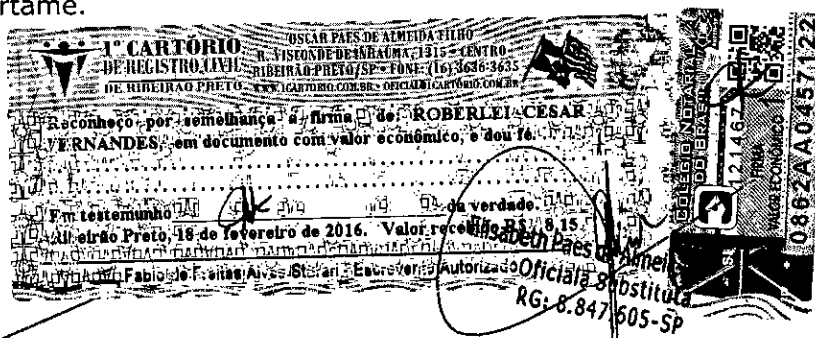 rtame.
1º CARTÓRIO
DE REGISTRO CIVIL
DE RIBEIRÃO PRETO
OSCAR PAES DE ALMEIDA FILHO
R. VISCONDE DE INHAÚMA, 1315 - CENTRO
RIBEIRÃO PRETO/SP - FONE: (16) 3636-3635
WWW.1CARTORIO.COM.BR - OFICIAL@1CARTORIO.COM.BR
Reconheço por semelhança a firma de: ROBERLEI CESAR
FERNANDES, em documento com valor econômico, e dou fé.
Em testemunho da verdade.
Ribeirão Preto, 18 de fevereiro de 2016. Valor recebido R$ 8,15.
Fabio de Freitas Alves Escrevente Autorizado
Elizabeth Paes de Almei
Oficiala Substituta
RG: 8.847.605-SP
COLEGIO NOTARIAL
DO BRASIL
121467
FIRMA
VALOR ECONÔMICO 1
0862AA0457122